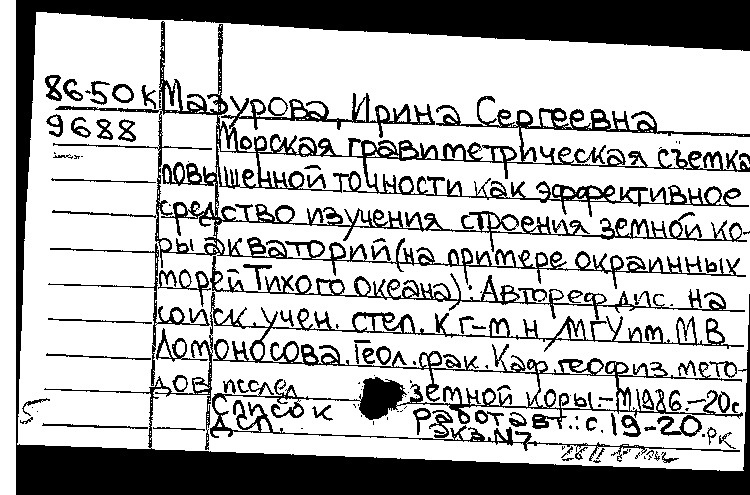 86-50к Мазурова, Ирина Сергеевна
9688 Морская гравиметрическая съемка
повышенной точности как эффективное
средство изучения строения земной ко-
ры акваторий (на примере окраинных
морей Тихого океана): Автореф. дис. на
соиск. учен. степ. к.г-м.н. / МГУ им. М.В.
Ломоносова. Геол. фак. Каф. геофиз. мето-
дов исслед. земной коры.-М, 1986.-20с
Список работ авт.: с. 19-20.
5 ДСП. Экз. №7. РК
28 II 87